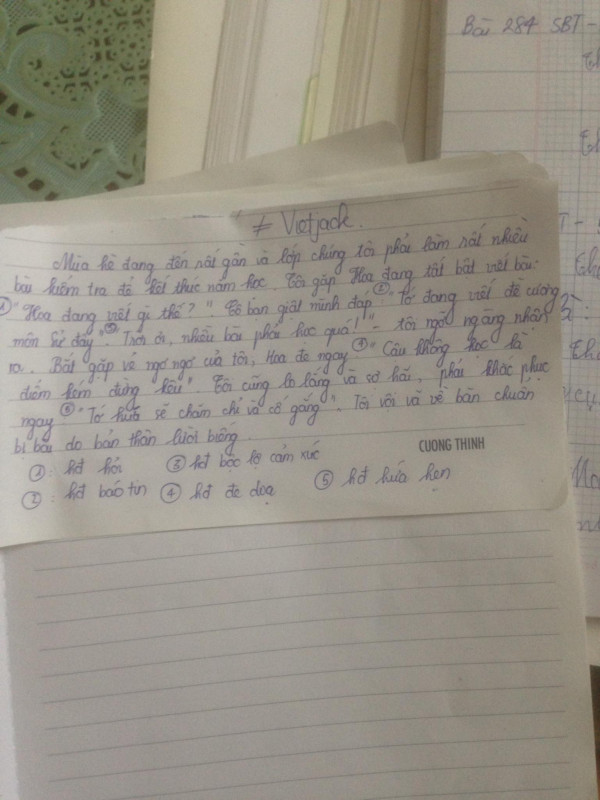 Bài 284 SBT -
≠ Vietjack.
Mùa hè đang đến rất gần và lớp chúng tôi phải làm rất nhiều
bài kiểm tra để kết thúc năm học. Tôi gặp Hoa đang tất bật viết bài:
① "Hoa đang viết gì thế?". Cô bạn giật mình đáp: ② "Tớ đang viết đề cương
môn Sử đấy" ③ "Trời ơi, nhiều bài phải học quá!" - tôi ngỡ ngàng nhận
ra. Bắt gặp vẻ ngơ ngơ của tôi, Hoa đe ngay ④ "Cậu không học là
điểm kém đừng kêu". Tôi cũng lo lắng và sợ hãi, phải khắc phục
ngay ⑤ "Tớ hứa sẽ chăm chỉ và cố gắng". Tôi vội vã về bàn chuẩn
bị bài do bản thân lười biếng.
CUONG THINH
①: hđ hỏi ③ hđ bộc lộ cảm xúc
②: hđ báo tin ④ hđ đe doạ ⑤ hđ hứa hẹn